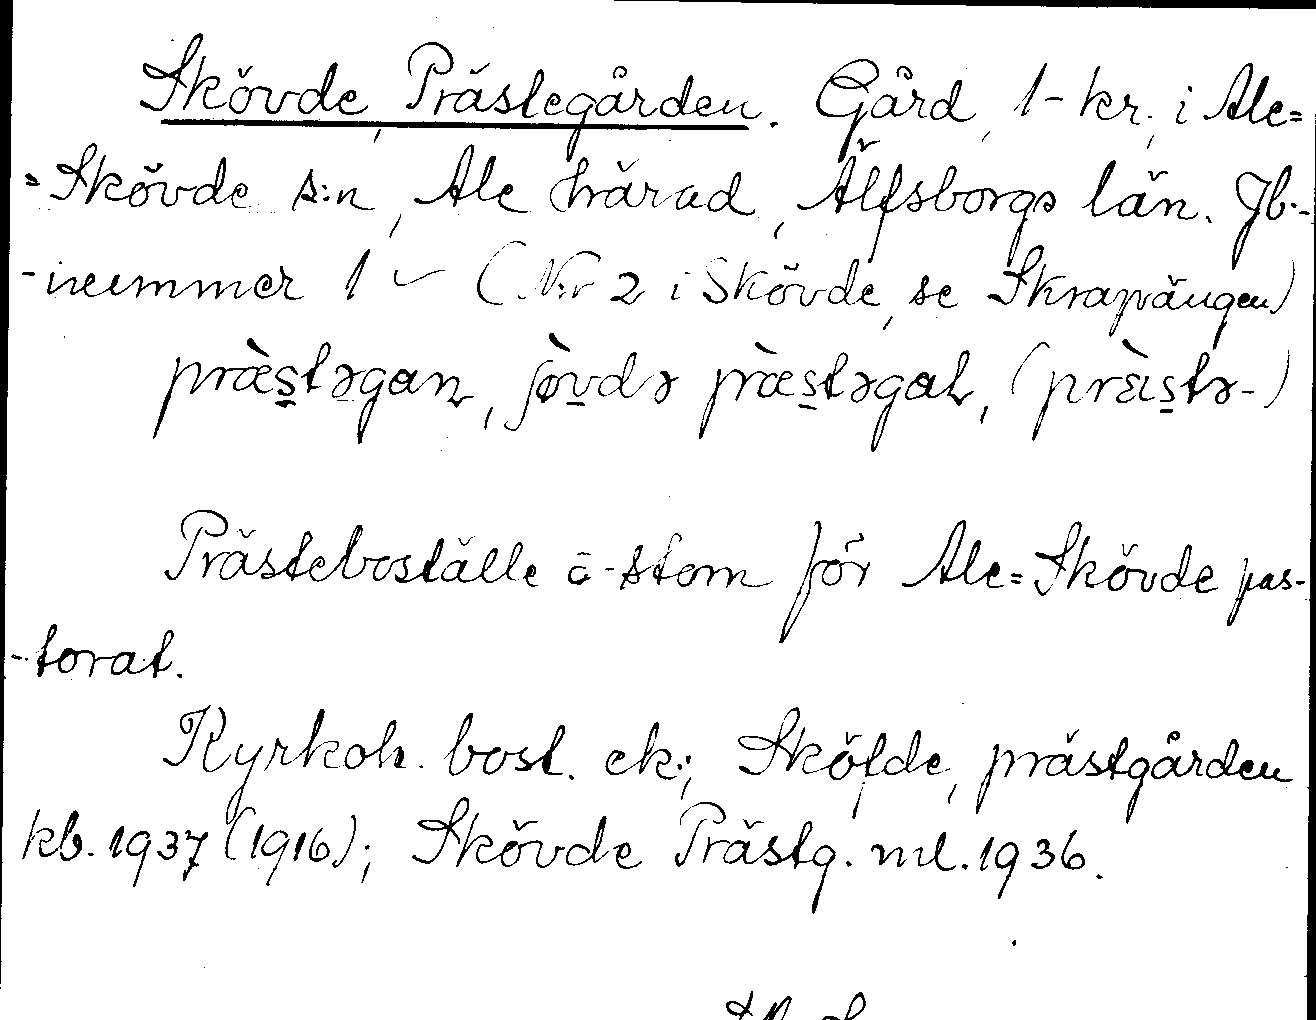 Skövde, Prästegården. Gård, 1-kr., i Ale=
=Skövde s:n, Ale härad, Älfsborgs län. Jb.-
-nummer 1 (N:r 2 i Skövde, se Skrapängen)
præ̀stəgaɳ, ʃøvdə præ̀stəgaɽ, (prɛ̀istə-)
Prästeboställe å-stom för Ale=Skövde pas-
-torat.
Kyrkoh. bost. ek.; Sköfde, prästgården
kb. 1937 (1916); Skövde Prästg. ml. 1936.